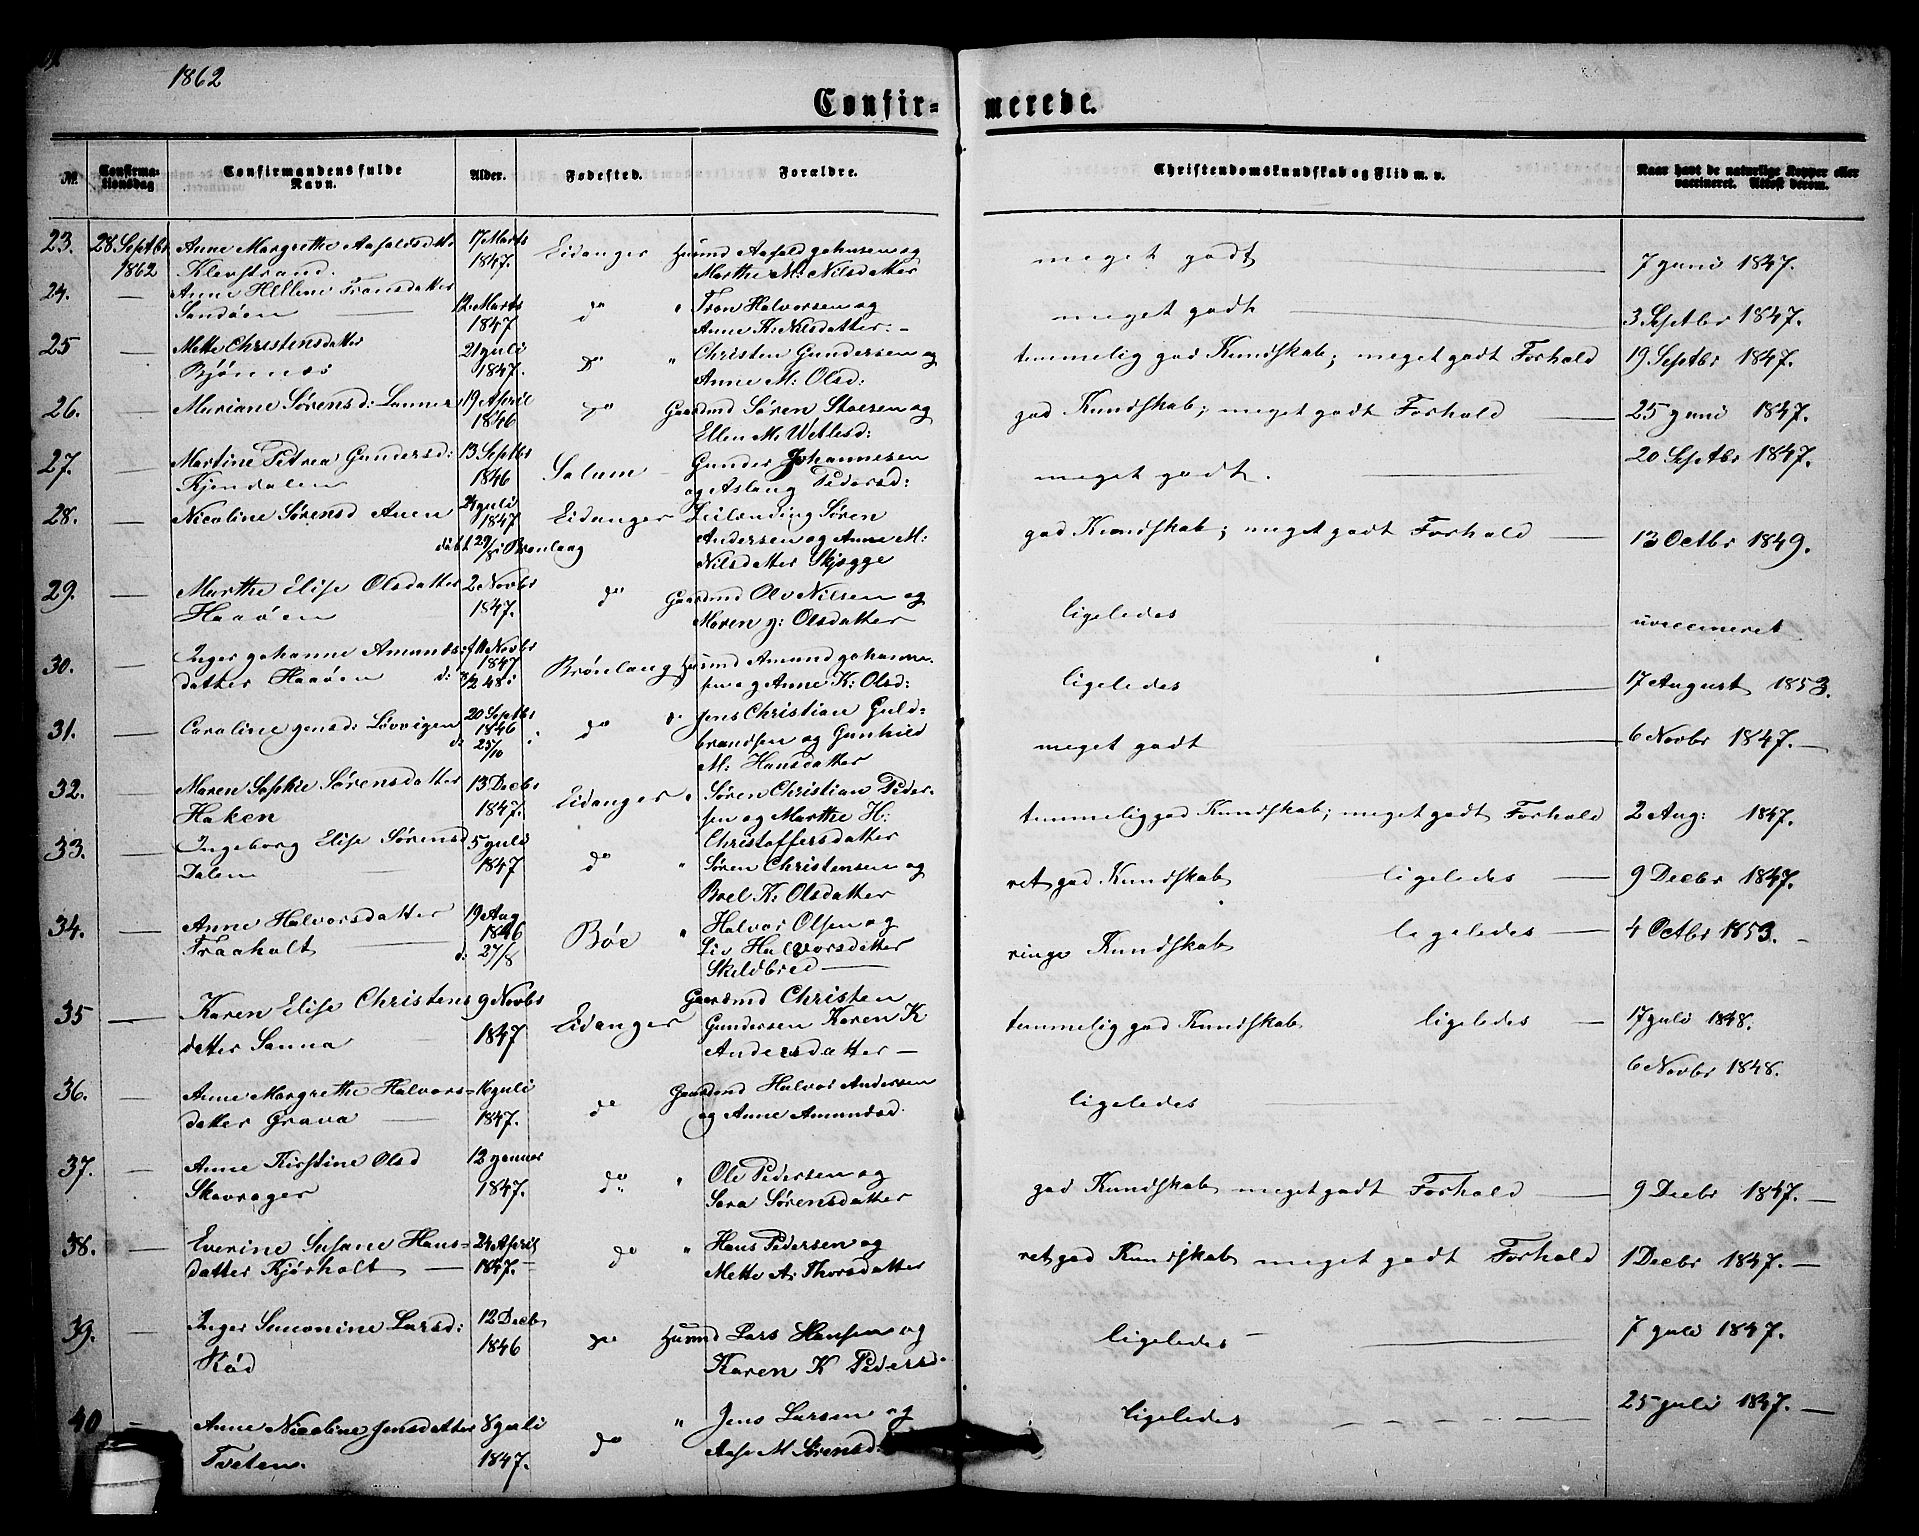 1862
Confir- merede.
No. Confirmationsdag Confirmandens fulde Navn. Alder. Fødested. Forældre. Christendomskundskab og Flid m. v. Naar havt de naturlige Kopper eller vaccineret. Attest derom.
23. 28 Septbr Anne Margrethe Aasoldsdtr 17 Marts Eidanger Husmd Aasold Johnsen og meget godt
1862 Klevstrand. 1847. Marthe M: Nilsdatter 7 Juni 1847.
24. — Anne Hellene Tronsdatter 12 Marts do " Tron Halvorsen og meget godt 3 Septbr 1847.
Sandøen 1847 Anne K: Nilsdatter:-
25 — Mette Christensdatter 21 Juli do " Christen Gundersen og temmelig god Kundskab; meget godt Forhold 19 Septbr 1847.
Bjønnes 1847. Anne M: Olsd:
26. — Mariane Sørensd: Lanner 19 April do Gaardmd Søren Stoesen og god Kundskab; meget godt Forhold 25 Juni 1847.
1846 Ellen M: Wetlesd:
27. — Martine Petrea Gundersd: 13 Septbr Solum — Gunder Johannesen meget godt. 20 Septbr 1847.
Kjendalen 1846 og Aslaug Pedersd:
28. — Nicoline Sørensd Auen 24 Juli Eidanger Leilænding Søren god Kundskab; meget godt Forhold 13 Octbr 1849.
1847 Andersen og Anne M:
døbt 29/8 i Brønlaug Nilsdatter Skjøgge
29. — Marthe Elise Olsdatter 2 Novbr do Gaardmd Ole Nilsen og ligeledes uvaccineret
Haaøen 1847. Maren J: Olsdatter
30. — Inger Johanne Amunds: 11 Novbr Brønlaug Husmd Amund Johanne- ligeledes 17 August 1853.
datter Haaøen d: 1847 sen og Anne K: Olsd:
2/2 48 i
31. — Caroline Jensd: Løvvigen 20 Septbr do Jens Christian Guld- meget godt 6 Novbr 1847. —
1846 brandsen og Gunhild
d: 25/10 i M: Hansdatter
32. — Maren Sophie Sørensdatter 13 Decbr Eidanger " Søren Christian Peder- temmelig god Kundskab; meget godt Forhold 2 Aug: 1847.
Haken 1847. sen og Marthe H:
Christoffersdatter
33. — Ingeborg Elise Sørensd 5 Juli do " Søren Christensen og ret god Kundskab ligeledes — 9 Decbr 1847.
Dalen 1847 Boel K: Olsdatter
34. — Anne Halvorsdatter 19 Aug Bøe " Halvor Olsen og ringe Kundskab ligeledes — 4 Octbr 1853. -
Traaholt 1846 Liv Halvorsdatter
d: 27/8 Skeldbred —
35 — Karen Elise Christens 9 Novbr Eidanger Gaardmd Christen temmelig god Kundskab ligeledes — 17 Juli 1848.
datter Sanna 1847 Gundersen Karen K
Andersdatter —
36. — Anne Margrethe Halvors- 16 Juli do Gaardmd Halvor Andersen ligeledes 6 Novbr 1848.
datter Grava 1847. og Anne Amundsd.
37. — Anne Kirstine Olsd 12 Januar do " Ole Pedersen og god Kundskab meget godt Forhold — 9 Decbr 1847. —
Skavrager 1847. Sara Sørensdatter
38. — Everine Susane Hans- 24 April do " Hans Pedersen og ret god Kundskab meget godt Forhold 1 Decbr 1847. —
datter Kjørholt — 1847. — Mette A: Thorsdatter
39. — Inger Simonine Larsd: 12 Decbr do Husmd Lars Hansen og ligeledes 7 Juli 1847.
Rød 1846 Karen K Pedersd.
40 — Anne Nicoline Jensdatter 8 Juli do " Jens Larsen og ligeledes 25 Juli 1847. —
Tveten. 1847. Aase M Sørensd: